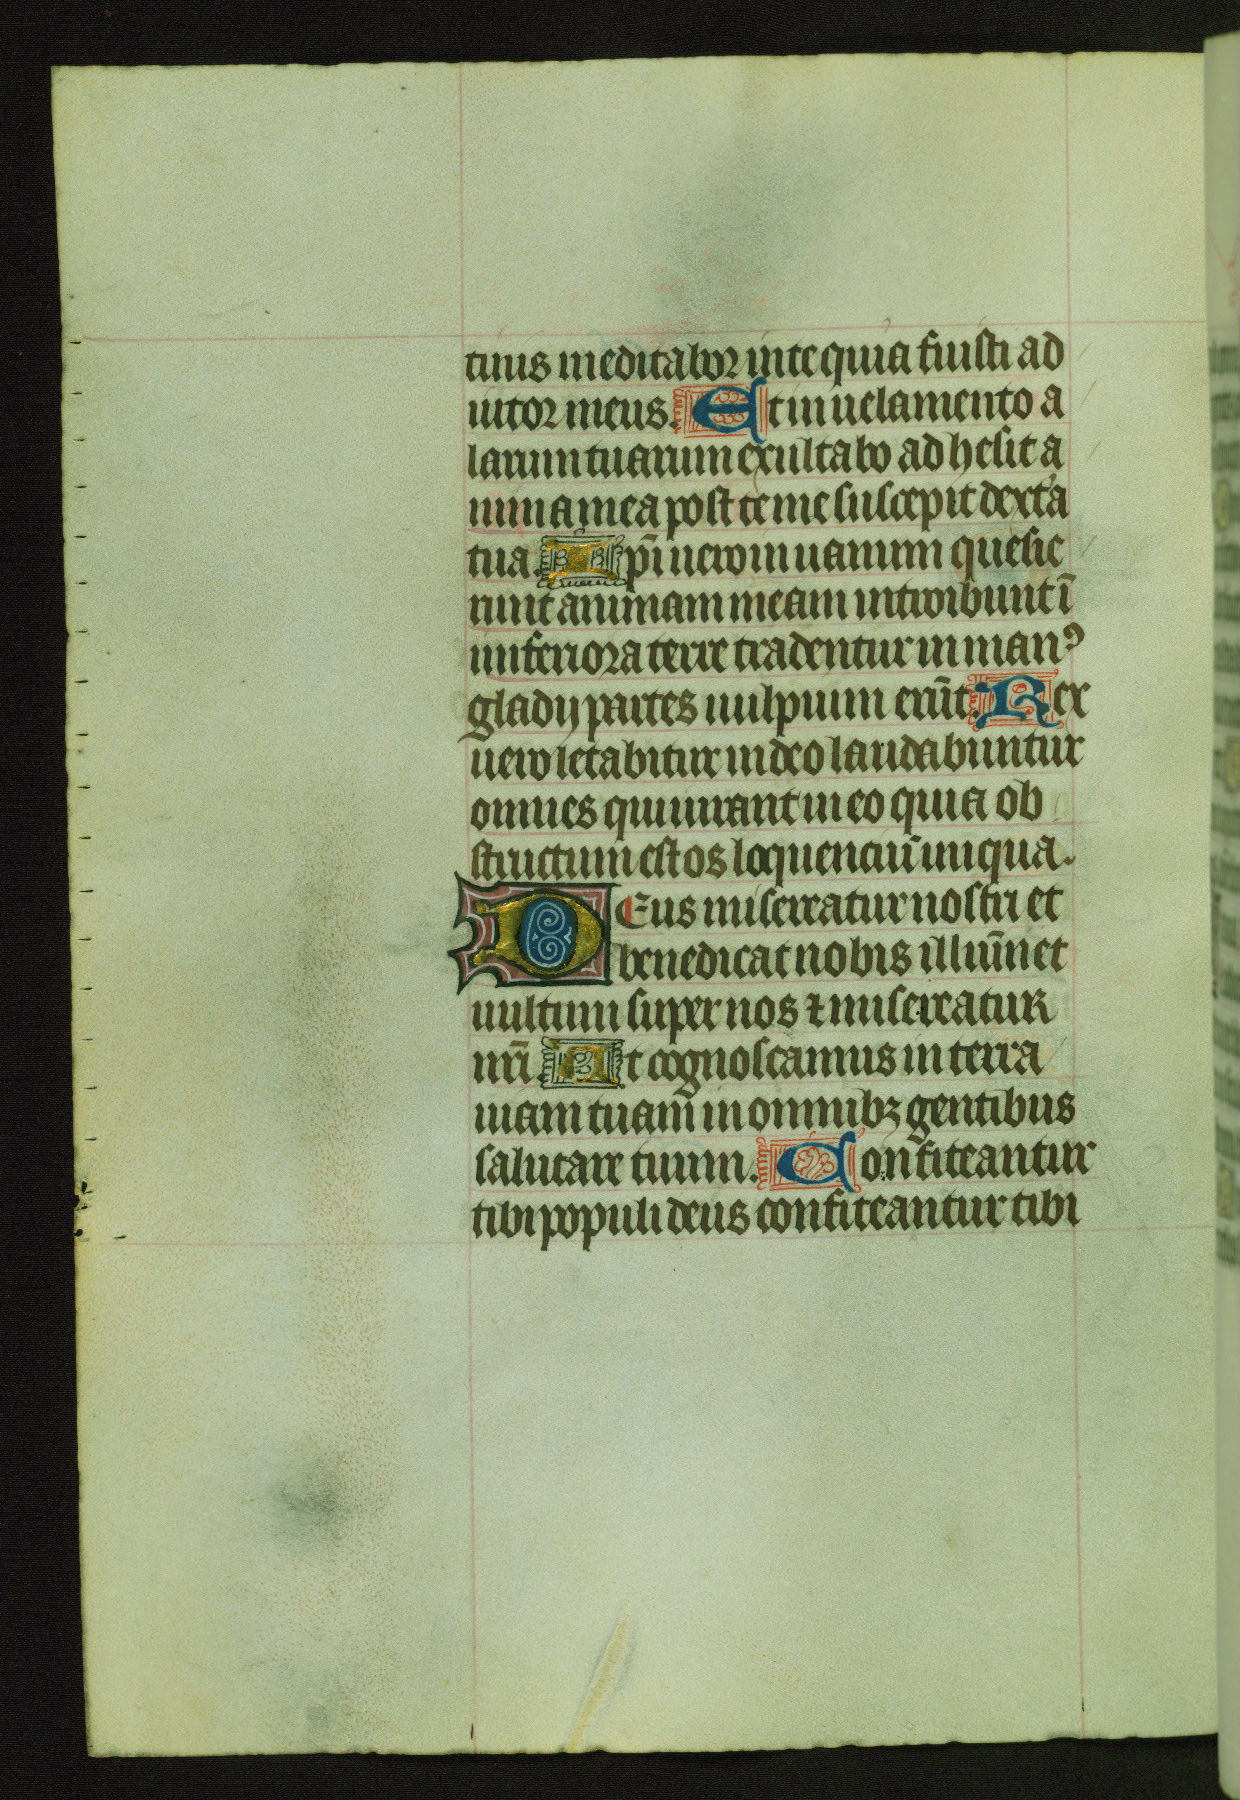 tinis meditabor in te quia fuisti ad
iutor meus. Et in uelamento a
larum tuarum exultabo adhesit a
nima mea post te me suscepit dext'a
tua. Ip̄i uero in uanum quesie
runt animam meam introibunt ī
inferiora terre tradentur in manꝰ
gladij partes uulpium erūt. Rex
uero letabitur in deo laudabuntur
omnes qui iurant in eo quia ob
structum est os loquenciū iniqua.
Deus misereatur nostri et
benedicat nobis illūinet
uultum super nos ⁊ misereatur
nr̄i. Ut cognoscamus in terra
uiam tuam in omnibꝫ gentibus
salutare tuum. Confiteantur
tibi populi deus confiteantur tibi